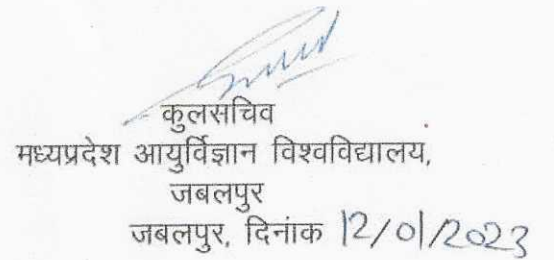 कुलसचिव
मध्यप्रदेश आयुर्विज्ञान विश्वविद्यालय,
जबलपुर
जबलपुर, दिनांक 12/01/2023